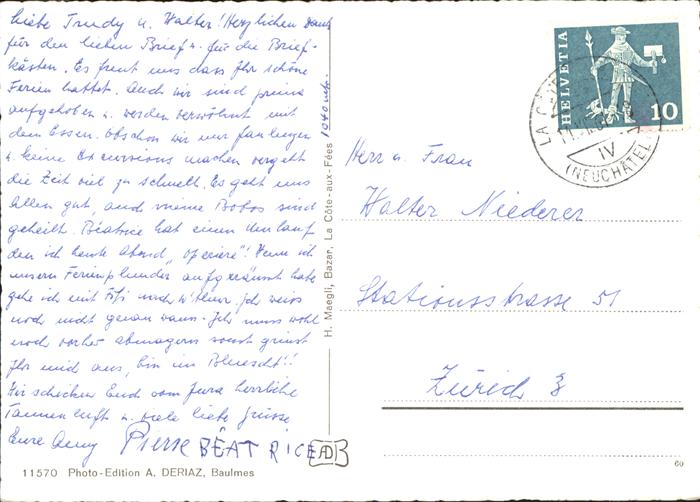 Liebe Trudy u. Walter! Herzlichen Dank
für den lieben Brief u. für die Brief-
kästen. Es freut uns dass Ihr schöne
Ferien hattet. Auch wir sind prima
aufgehoben u. werden verwöhnt mit
dem Essen. Obschon wir nur faulenzen
u. keine Excursions machen vergeht
die Zeit viel zu schnell. Es geht uns
allen gut auch meine Bobos sind
geheilt. Béatrice hat einen
den ich heute Abend "operiere"! Wenn ich
unsern Ferienplunder aufgeräumt habe
gehe ich mit Fifi nach W'thur. Ich weiss
noch nicht genau wann. Ich muss wohl
noch vorher abmagern sonst
Ihr mich aus, bin im
Wir schicken Euch vom Jura herrliche
Tannenluft u. viele liebe Grüsse
Eure Anny Pierre BÉATRICE
1040 mtr.
H. Maegli, Bazar, La Côte-aux-Fées
11570 Photo-Edition A. DERIAZ, Baulmes
HELVETIA
10
LA CÔTE
IV
(NEUCHÂTEL)
Herr u. Frau
Walter Niederer
Stationsstrasse 51
Zürich 3
60